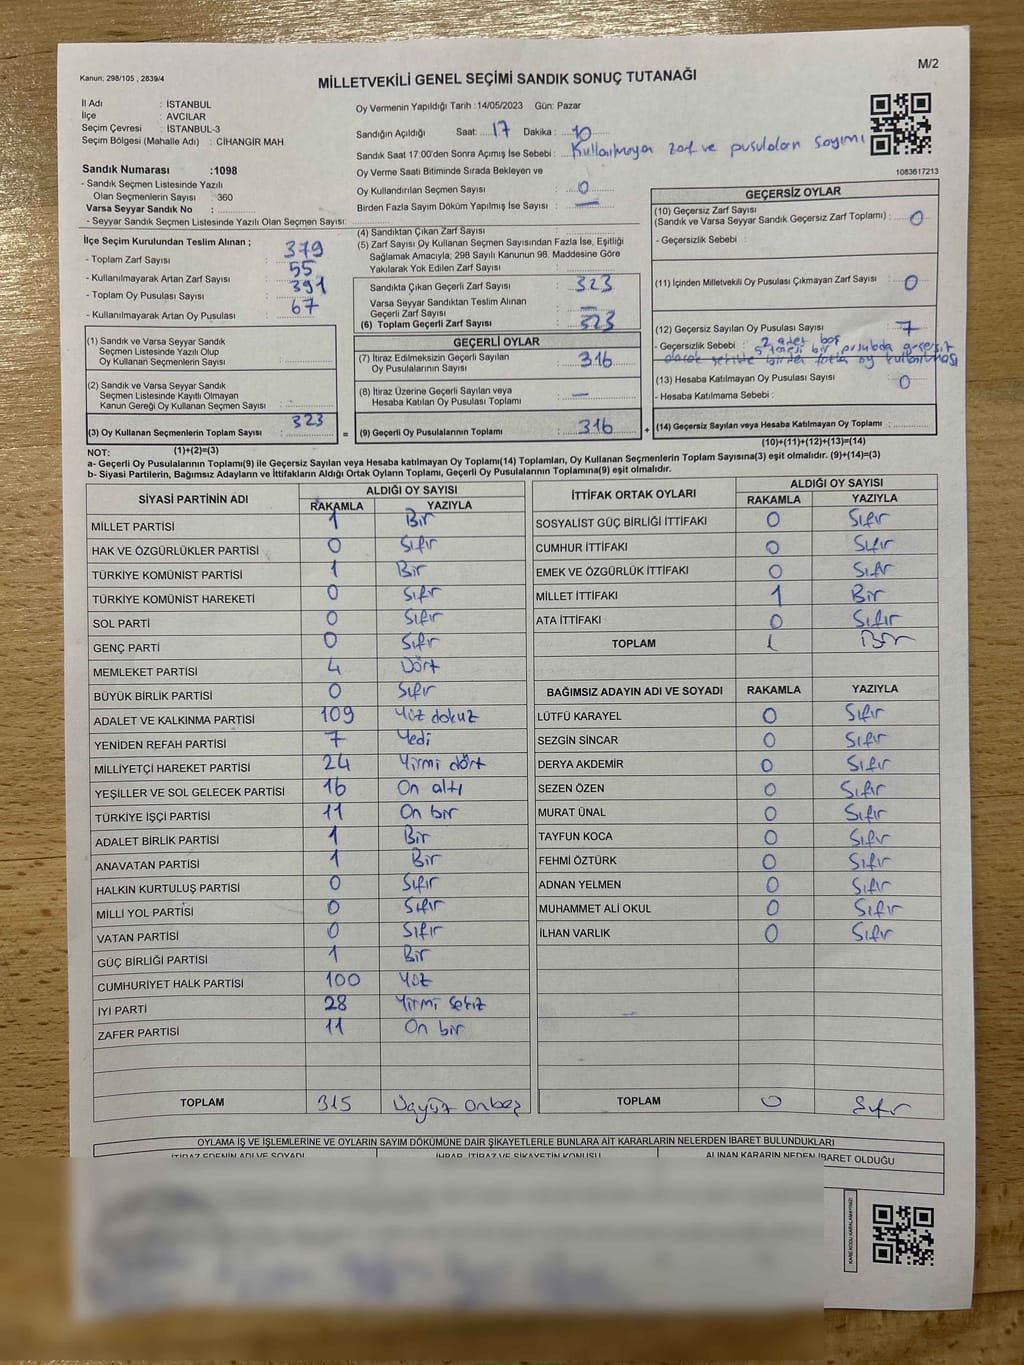 M/2
Kanun: 298/105 , 2839/4
MİLLETVEKİLİ GENEL SEÇİMİ SANDIK SONUÇ TUTANAĞI
İl Adı : İSTANBUL
İlçe : AVCILAR
Seçim Çevresi : İSTANBUL-3
Seçim Bölgesi (Mahalle Adı) : CİHANGİR MAH.
Sandık Numarası :1098
- Sandık Seçmen Listesinde Yazılı
Olan Seçmenlerin Sayısı : 360
Varsa Seyyar Sandık No :
- Seyyar Sandık Seçmen Listesinde Yazılı Olan Seçmen Sayısı:
Oy Vermenin Yapıldığı Tarih :14/05/2023 Gün: Pazar
Sandığın Açıldığı Saat: 17 Dakika : 10
Sandık Saat 17:00'den Sonra Açımış İse Sebebi : Kullanılmayan zarf ve pusulaların sayımı
Oy Verme Saati Bitiminde Sırada Bekleyen ve
Oy Kullandırılan Seçmen Sayısı : 0
Birden Fazla Sayım Döküm Yapılmış İse Sayısı : —
1063617213
İlçe Seçim Kurulundan Teslim Alınan ;
- Toplam Zarf Sayısı : 379
- Kullanılmayarak Artan Zarf Sayısı : 55
- Toplam Oy Pusulası Sayısı : 391
- Kullanılmayarak Artan Oy Pusulası : 67
(1) Sandık ve Varsa Seyyar Sandık
Seçmen Listesinde Yazılı Olup
Oy Kullanan Seçmenlerin Sayısı :
(2) Sandık ve Varsa Seyyar Sandık
Seçmen Listesinde Kayıtlı Olmayan
Kanun Gereği Oy Kullanan Seçmen Sayısı :
(3) Oy Kullanan Seçmenlerin Toplam Sayısı : 323 =
(4) Sandıktan Çıkan Zarf Sayısı :
(5) Zarf Sayısı Oy Kullanan Seçmen Sayısından Fazla İse, Eşitliği
Sağlamak Amacıyla; 298 Sayılı Kanunun 98. Maddesine Göre
Yakılarak Yok Edilen Zarf Sayısı :
Sandıkta Çıkan Geçerli Zarf Sayısı : 323
Varsa Seyyar Sandıktan Teslim Alınan
Geçerli Zarf Sayısı : —
(6) Toplam Geçerli Zarf Sayısı : 323
GEÇERLİ OYLAR
(7) İtiraz Edilmeksizin Geçerli Sayılan
Oy Pusulalarının Sayısı : 316
(8) İtiraz Üzerine Geçerli Sayılan veya
Hesaba Katılan Oy Pusulası Toplamı : —
(9) Geçerli Oy Pusulalarının Toplamı : 316 +
GEÇERSİZ OYLAR
(10) Geçersiz Zarf Sayısı
(Sandık ve Varsa Seyyar Sandık Geçersiz Zarf Toplamı) : 0
- Geçersizlik Sebebi :
(11) İçinden Milletvekili Oy Pusulası Çıkmayan Zarf Sayısı : 0
(12) Geçersiz Sayılan Oy Pusulası Sayısı : 7
- Geçersizlik Sebebi : 2 adet boş
5 bir pusulada geçersiz
olacak şekilde birden fazla oy kullanılması
(13) Hesaba Katılmayan Oy Pusulası Sayısı : 0
- Hesaba Katılmama Sebebi :
(14) Geçersiz Sayılan veya Hesaba Katılmayan Oy Toplamı :
NOT: (1)+(2)=(3) (10)+(11)+(12)+(13)=(14)
a- Geçerli Oy Pusulalarının Toplamı(9) ile Geçersiz Sayılan veya Hesaba katılmayan Oy Toplamı(14) Toplamları, Oy Kullanan Seçmenlerin Toplam Sayısına(3) eşit olmalıdır. (9)+(14)=(3)
b- Siyasi Partilerin, Bağımsız Adayların ve İttifakların Aldığı Ortak Oyların Toplamı, Geçerli Oy Pusulalarının Toplamına(9) eşit olmalıdır.
SİYASİ PARTİNİN ADI ALDIĞI OY SAYISI
RAKAMLA YAZIYLA
MİLLET PARTİSİ 1 Bir
HAK VE ÖZGÜRLÜKLER PARTİSİ 0 Sıfır
TÜRKİYE KOMÜNİST PARTİSİ 1 Bir
TÜRKİYE KOMÜNİST HAREKETİ 0 Sıfır
SOL PARTİ 0 Sıfır
GENÇ PARTİ 0 Sıfır
MEMLEKET PARTİSİ 4 Dört
BÜYÜK BİRLİK PARTİSİ 0 Sıfır
ADALET VE KALKINMA PARTİSİ 109 Yüz dokuz
YENİDEN REFAH PARTİSİ 7 Yedi
MİLLİYETÇİ HAREKET PARTİSİ 24 Yirmi dört
YEŞİLLER VE SOL GELECEK PARTİSİ 16 On altı
TÜRKİYE İŞÇİ PARTİSİ 11 On bir
ADALET BİRLİK PARTİSİ 1 Bir
ANAVATAN PARTİSİ 1 Bir
HALKIN KURTULUŞ PARTİSİ 0 Sıfır
MİLLİ YOL PARTİSİ 0 Sıfır
VATAN PARTİSİ 0 Sıfır
GÜÇ BİRLİĞİ PARTİSİ 1 Bir
CUMHURİYET HALK PARTİSİ 100 Yüz
İYİ PARTİ 28 Yirmi sekiz
ZAFER PARTİSİ 11 On bir
TOPLAM 315 Üçyüz onbeş
İTTİFAK ORTAK OYLARI ALDIĞI OY SAYISI
RAKAMLA YAZIYLA
SOSYALİST GÜÇ BİRLİĞİ İTTİFAKI 0 Sıfır
CUMHUR İTTİFAKI 0 Sıfır
EMEK VE ÖZGÜRLÜK İTTİFAKI 0 Sıfır
MİLLET İTTİFAKI 1 Bir
ATA İTTİFAKI 0 Sıfır
TOPLAM 1 Bir
BAĞIMSIZ ADAYIN ADI VE SOYADI RAKAMLA YAZIYLA
LÜTFÜ KARAYEL 0 Sıfır
SEZGİN SİNCAR 0 Sıfır
DERYA AKDEMİR 0 Sıfır
SEZEN ÖZEN 0 Sıfır
MURAT ÜNAL 0 Sıfır
TAYFUN KOCA 0 Sıfır
FEHMİ ÖZTÜRK 0 Sıfır
ADNAN YELMEN 0 Sıfır
MUHAMMET ALİ OKUL 0 Sıfır
İLHAN VARLIK 0 Sıfır
TOPLAM 0 Sıfır
OYLAMA İŞ VE İŞLEMLERİNE VE OYLARIN SAYIM DÖKÜMÜNE DAİR ŞİKAYETLERLE BUNLARA AİT KARARLARIN NELERDEN İBARET BULUNDUKLARI
İTİRAZ EDENİN ADI VE SOYADI İHBAR, İTİRAZ VE ŞİKAYETİN KONUSU ALINAN KARARIN NEDEN İBARET OLDUĞU
KARE KODU KARALAMAYINIZ!